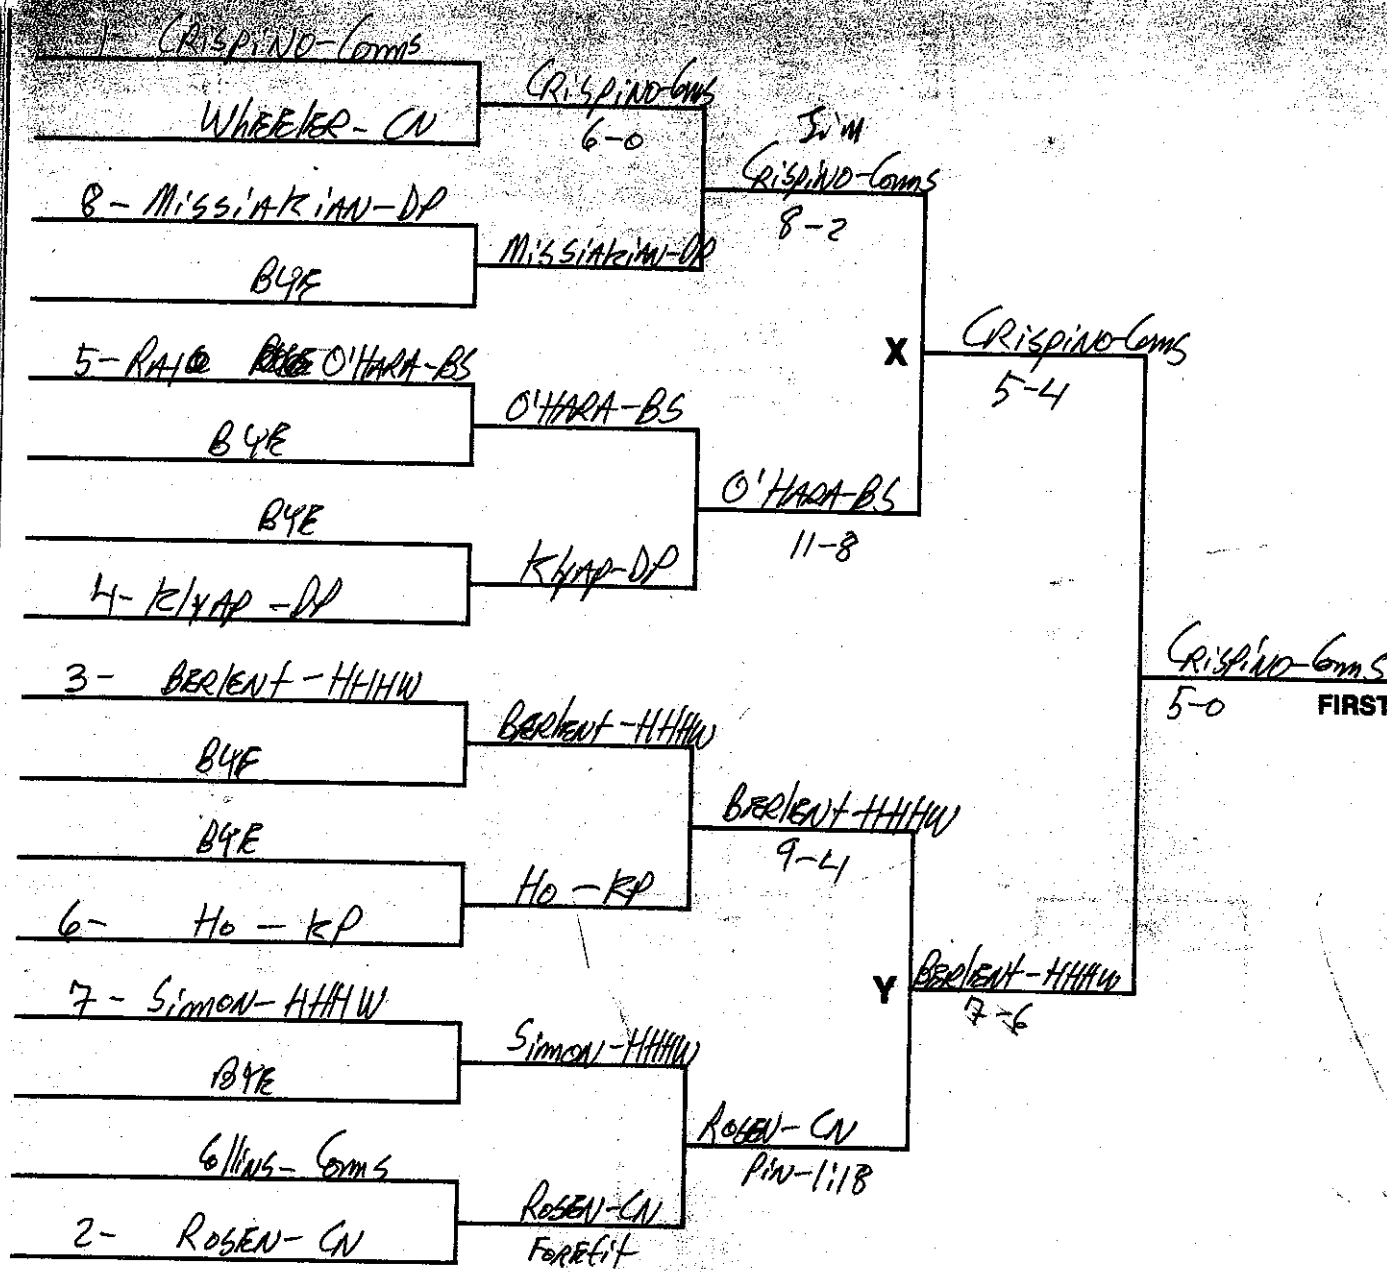 1- CRISPINO-Comms
WHEELER- CN
8- MISSIAKIAN-DP
BYE
5- O'HARA-BS
BYE
BYE
4- KlyAP -DP
3- BERlENt -HHHW
BYE
BYE
6- Ho - KP
7- SimoN-HHHW
BYE
Collins- Comms
2- ROSEN- CN
CRISPINO-Comms
6-0
MISSIAKIAN-DP
O'HARA-BS
KlyAP-DP
BERlENt -HHHW
Ho -KP
SimoN-HHHW
ROSEN-CN
FOREfit
Jim
CRISPINO-Comms
8-2
O'HARA-BS
11-8
BERlENt-HHHW
9-4
ROSEN- CN
PiN-1:18
X
CRISPINO-Comms
5-4
Y
BERlENt-HHHW
7-6
CRISPINO-Comms
5-0
FIRST